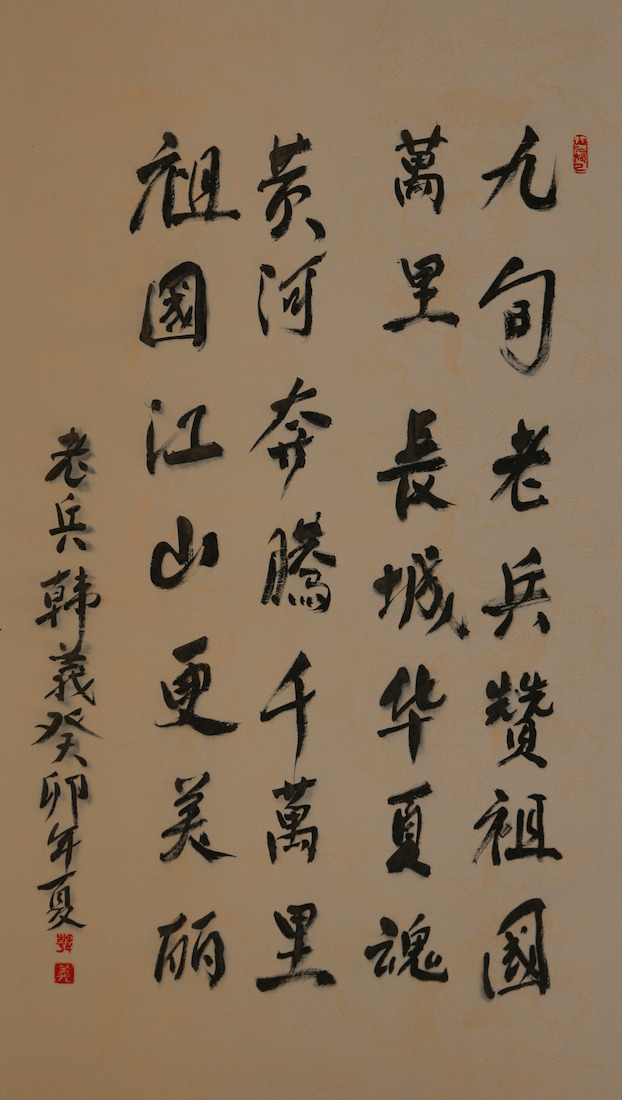 九旬老兵赞祖國
萬里長城华夏魂
黄河奔騰千萬里
祖國江山更美丽
老兵韩義癸卯年夏
韓
義